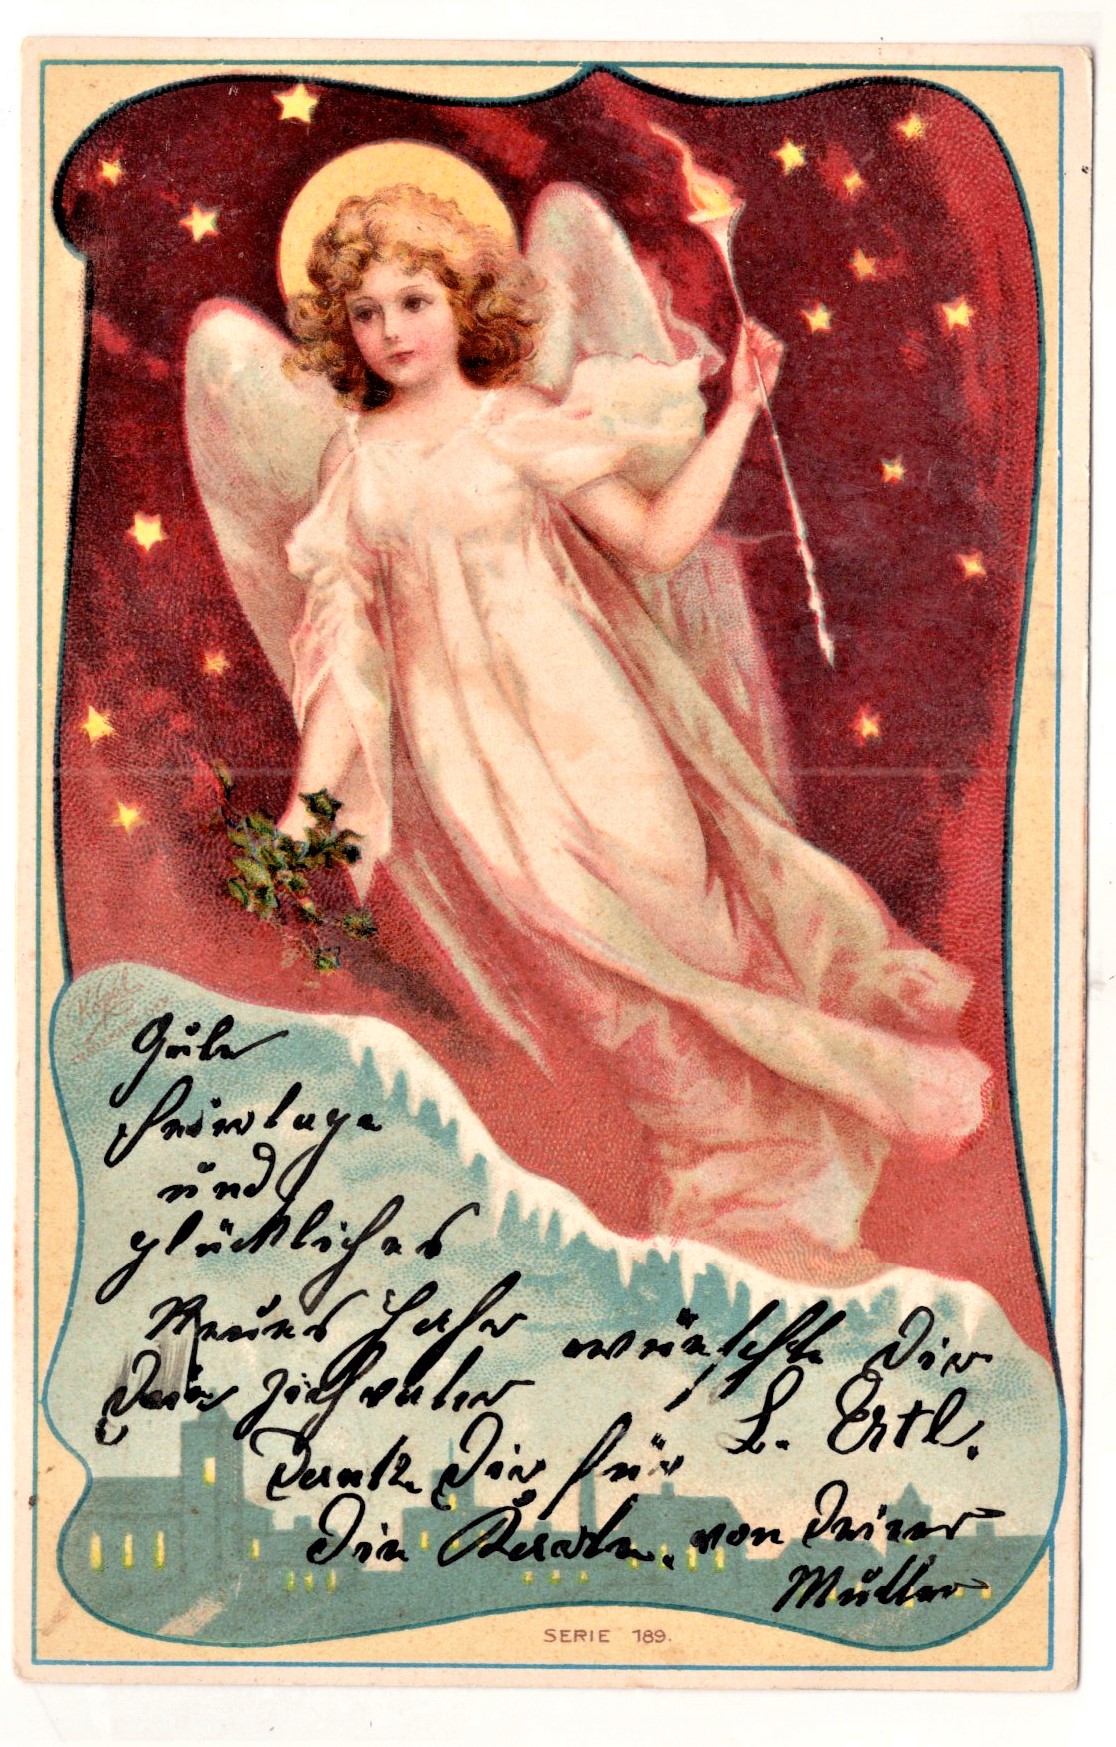 Gute
Feiertage
und
glückliches
Neues Jahr wünscht Dir
Dein Ziehvater L. Ertl.
Danke Dir für
Die Karte. von Deiner
Mutter
SERIE 189.